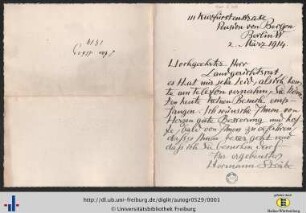 111 Kurfürstenstrasse
Pension von Bergen
Berlin W
2. März 1914.
Hochgeehrter Herr
Landgerichtsrat
es thut mir sehr leid, als ich heute
am Telefon vernahm, Sie könnten
heute keinen Besuche empfangen.
Ich wünsche Ihnen von
Herzen gute Besserung und hoffe
von Ihnen zu erfahren
dass es Ihnen besser geht und
dass ich Sie besuchen darf
Ihr ergebenster
Hermann
http://dl.ub.uni-freiburg.de/diglit/autogr0529/0001
© Universitätsbibliothek Freiburg